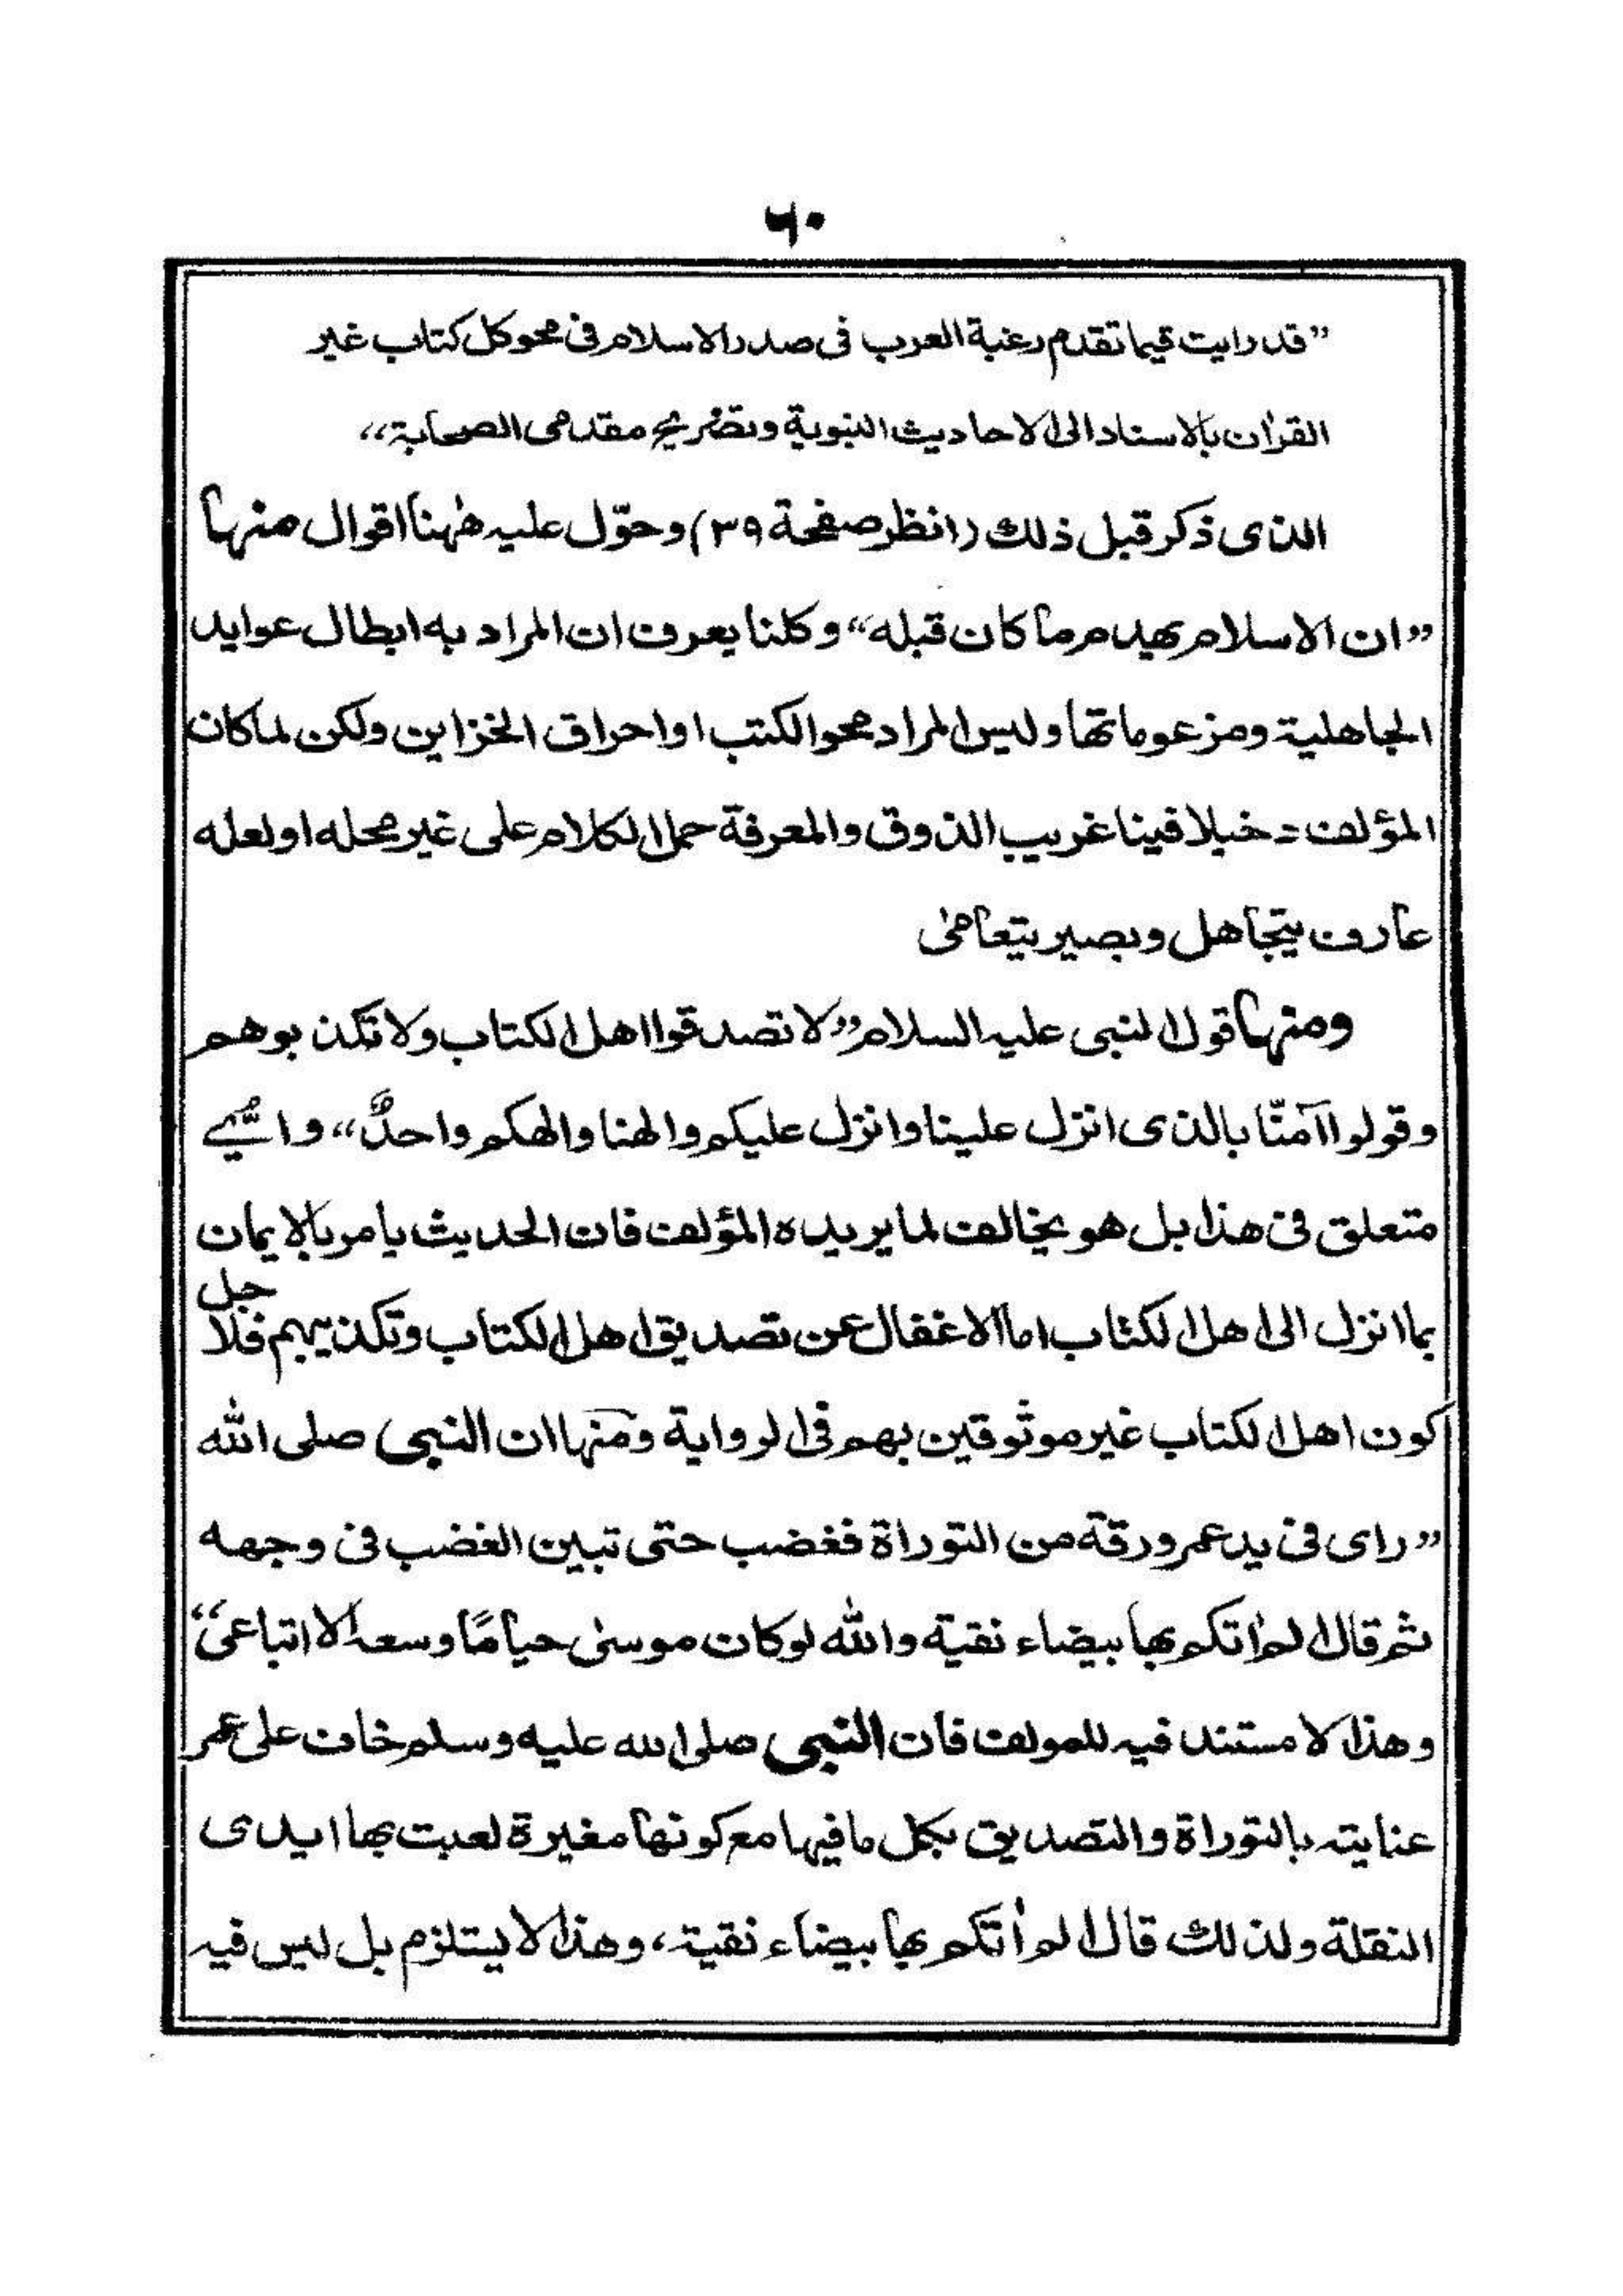 ٦٠
”قد رايت فيما تقدم رغبة العرب فى صدر الاسلام فى محو كل كتاب غير
القرأن بالاسناد الى الاحاديث النبوية وتصريح مقدمى الصحابة“
الذى ذكر قبل ذلك (انظر صفحة ٣٩) وحوّل عليه ههنا اقوال منها
”ان الاسلام يهدم ما كان قبله“ وكلنا يعرف ان المراد به ابطال عوايد
الجاهلية ومزعوماتها وليس المراد محو الكتب او احراق الخزاين ولكن لما كان
المؤلف دخيلا فينا غريب الذوق والمعرفة حمل الكلام على غير محله او لعله
عارف يتجاهل وبصير يتعامى
ومنها قول النبى عليه السلام ”لا تصدقوا اهل الكتاب ولا تكذبوهم
وقولوا آمنّا بالذى انزل علينا وانزل عليكم والهنا والهكم واحدٌ“ واىّ شيے
متعلق فى هذا بل هو يخالف لما يريده المؤلف فان الحديث يامر بالايمان
بما انزل الى اهل الكتاب اما الاغفال عن تصديق اهل الكتاب وتكذيبهم فلاجل
كون اهل الكتاب غير موثوقين بهم فى الرواية ومنها ان النبى صلى الله
” راى فى يد عمر ورقة من التوراة فغضب حتى تبين الغضب فى وجهه
ثم قال الم اتكم بها بيضاء نقية والله لو كان موسىٰ حيا مّا وسعه الا اتباعى“
وهذا لا مستند فيه للمولف فان النبى صلى الله عليه وسلم خاف على عمر
عنايته بالتوراة والتصديق بكل ما فيها مع كونها مغيرة لعبت بها ايدى
النقلة ولذلك قال الم أتكم بها بيضاء نقية، وهذا لا يستلزم بل ليس فيه